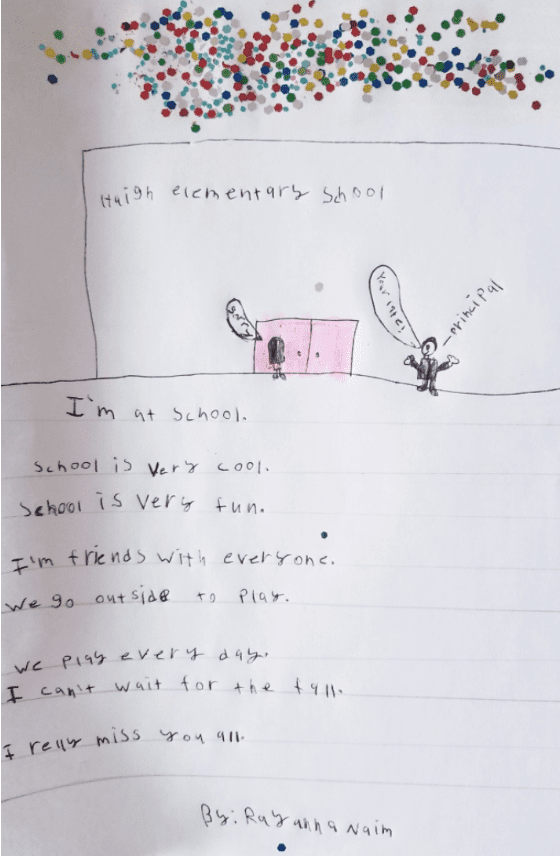 Haigh elementary Shool
Sorry
Your late!
principal
I'm at School.
School is very cool.
School is very fun.
I'm friends with everyone.
We go outside to play.
We play every day.
I can't wait for the fall.
I relly miss you all.
By: Rayanna Naim